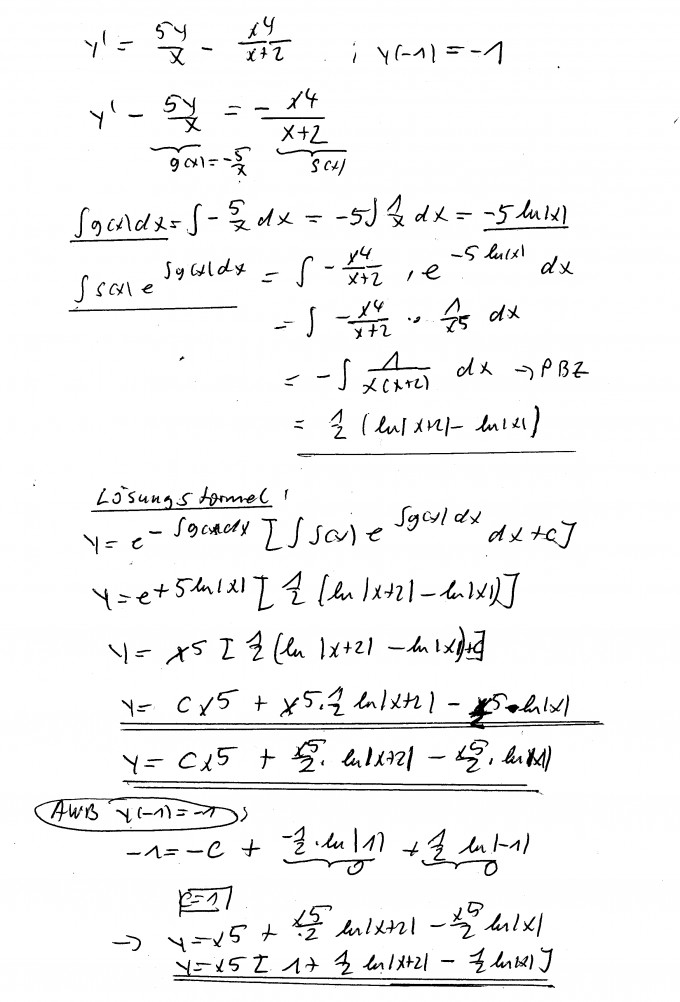 y' = 5y/x - x4/x+2 ; y(-1) = -1
y' - 5y/x = - x4/x+2
g(x) = -5/x s(x)
∫g(x)dx = ∫-5/x dx = -5∫1/x dx = -5 ln|x|
∫s(x) e^∫g(x)dx = ∫ - x4/x+2 · e^-5 ln|x| dx
= ∫ - x4/x+2 · 1/x5 dx
= -∫ 1/x(x+2) dx → PBZ
= 1/2 (ln|x+2| - ln|x|)
Lösungsformel:
y = e^-∫g(x)dx [∫s(x) e^∫g(x)dx dx + c]
y = e^+5 ln|x| [1/2 (ln|x+2| - ln|x|)]
y = x5 [1/2 (ln|x+2| - ln|x|)+c]
y = Cx5 + x5 · 1/2 ln|x+2| - x5/2 · ln|x|
y = Cx5 + x5/2 · ln|x+2| - x5/2 · ln|x|
AWB y(-1) = -1 :
-1 = -C + -1/2 · ln|1| + 1/2 ln|-1|
0 0
C=1
→ y = x5 + x5/2 ln|x+2| - x5/2 ln|x|
y = x5 [1 + 1/2 ln|x+2| - 1/2 ln|x|]